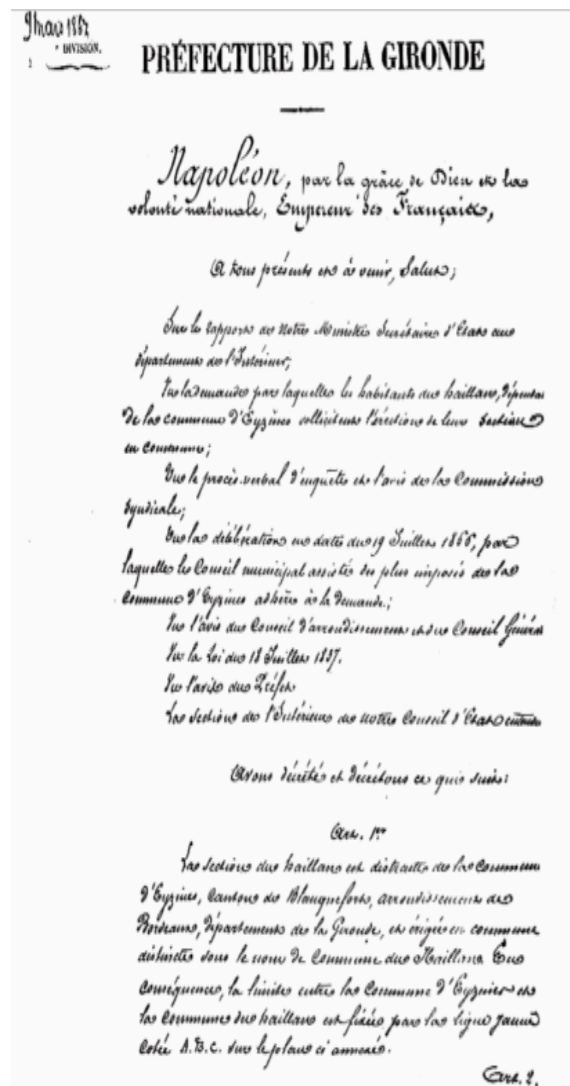 9 mai 1867
DIVISION.
PRÉFECTURE DE LA GIRONDE
Napoléon, par la grâce de Dieu et la
volonté nationale, Empereur des Français,
A tous présents et à venir, Salut;
Sur le rapport de Notre Ministre Secrétaire d'Etat au
département de l'Intérieur;
Vu la demande par laquelle les habitants du haillan,
de la commune d'Eyzines sollicitent l'érection de leur section
en commune;
Vu le procès-verbal d'enquête et l'avis de la Commission
Syndicale;
Vu la délibération en date du 19 Juillet 1866, par
laquelle le Conseil municipal assisté des plus imposés de la
Commune d'Eyzines adhère à la demande;
Vu l'avis du Conseil d'arrondissement et du Conseil Général
Vu la Loi du 18 Juillet 1837.
Vu l'avis du Préfet
La section de l'Intérieur de notre Conseil d'Etat entendue
Avons décrété et décrétons ce qui suit:
Art. 1er
La section du haillan est distraite de la commune
d'Eyzines, canton de Blanquefort, arrondissement de
Bordeaux, département de la Gironde, et érigée en commune
distincte sous le nom de Commune du Haillan. En
conséquence, la limite entre la Commune d'Eyzines et
la Commune du haillan est fixée par la ligne jaune
cotée A.B.C. sur le plan ci annexé.
Art. 2.